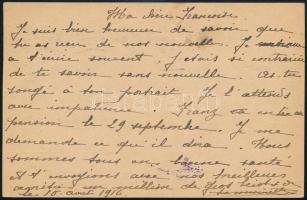 Ma chère Françoise.
Je suis bien heureux de savoir que
tu as reçu de nos nouvelles. Je
à t'écrire souvent. J'étais si contrariée
de te savoir sans nouvelle. As-tu
songé à ton portrait. Je l'attends
avec impatience. Franz va entrer en
pension le 29 septembre. Je me
demande ce qu'il dira. Nous
sommes tous en bonne santé
et t'envoyons avec nos meilleures
amitiés un million de gros baisers
le 10 août 1916.